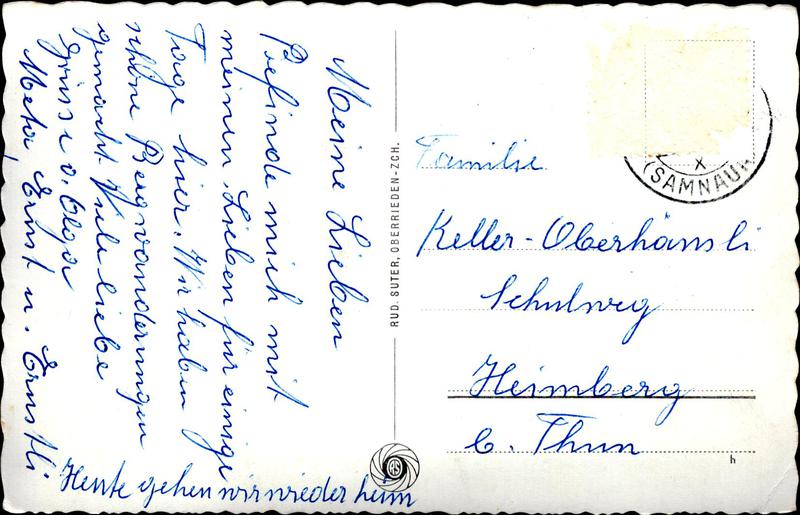 Meine Lieben
Befinde mich mit
meinen Lieben für einige
Tage hier. Wir haben
schöne Bergwanderungen
gemacht. Viele liebe
Grüsse v. Olga
Meta, Ernst u. Ernstli
Heute gehen wir wieder heim
RUD. SUTER, OBERRIEDEN-ZCH.
RS
(SAMNAUN
Familie
Keller-Oberhänsli
Schulweg
Heimberg
b. Thun
h